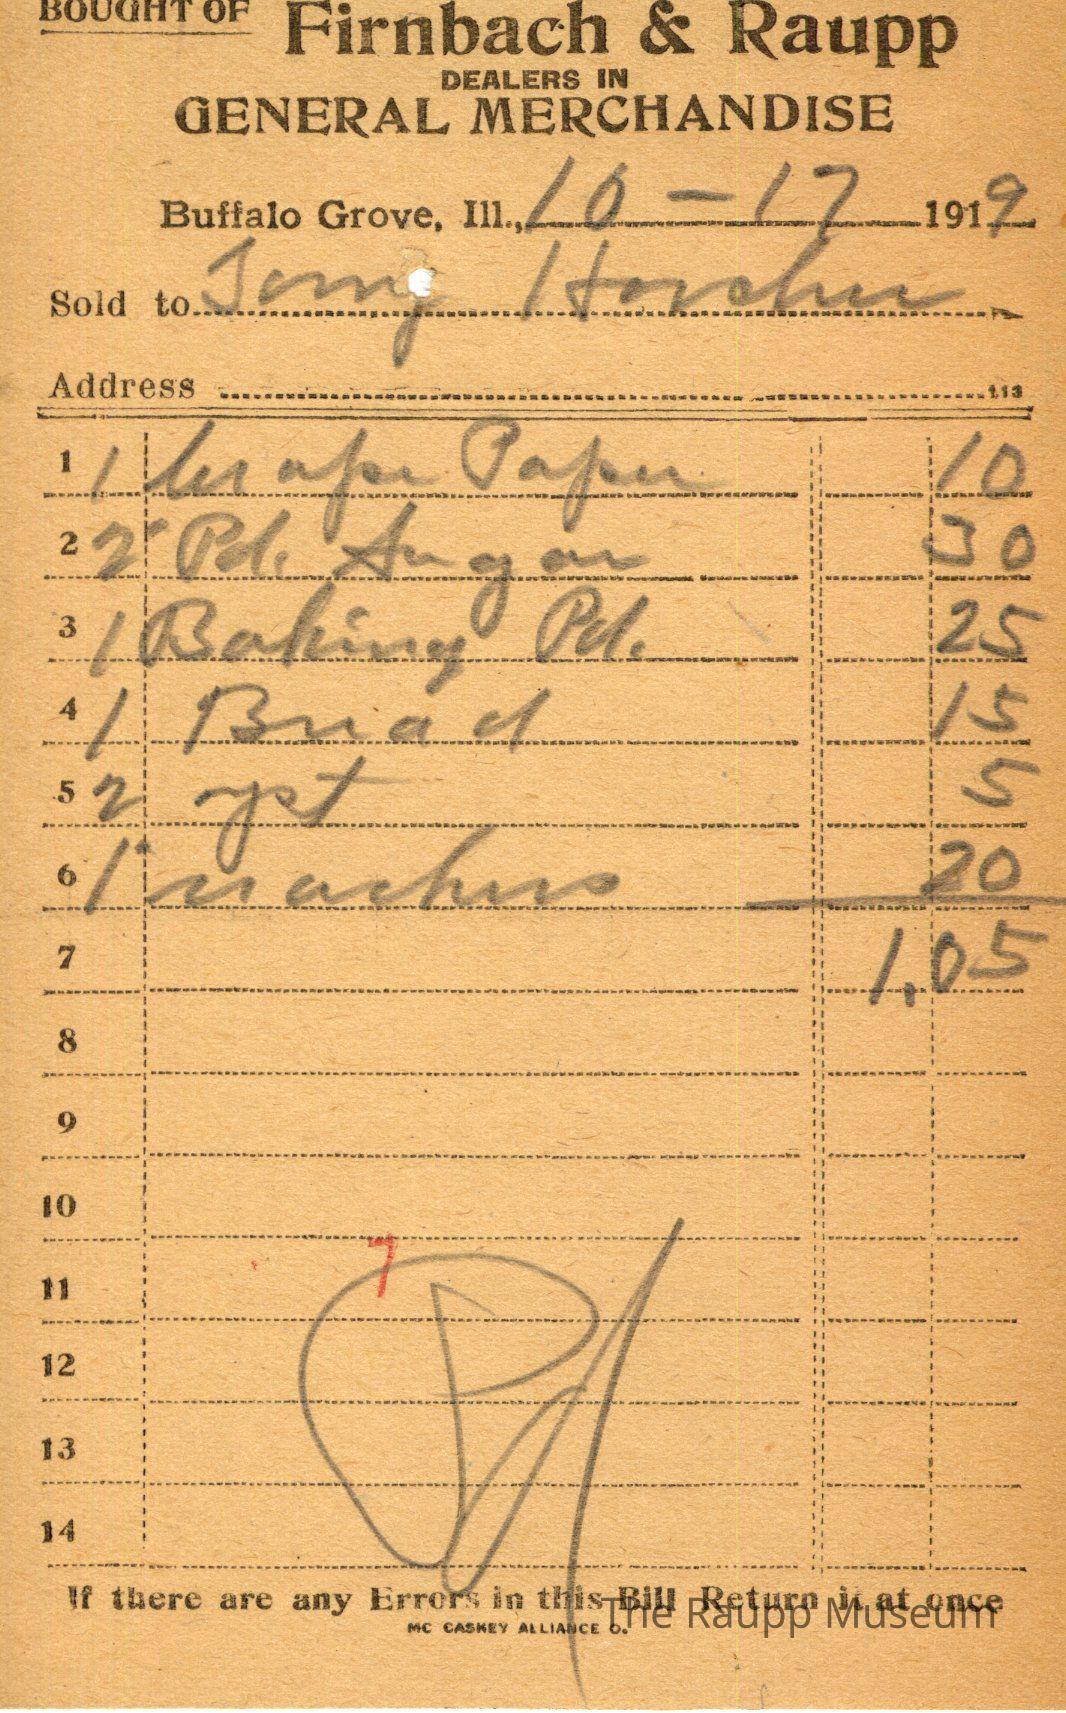 BOUGHT OF Firnbach & Raupp
DEALERS IN
GENERAL MERCHANDISE
Buffalo Grove, Ill., 10-17 1919
Sold to Horcher
Address 113
1 1 Paper 10
2 2 Pd. Sugar 30
3 1 Baking Pd. 25
4 1 Bread 15
5 2 yst 5
6 1 20
7 1.05
8
9
10
7
11
12
13
14
If there are any Errors in this Bill Return it at once
MC CASKEY ALLIANCE O.
The Raupp Museum